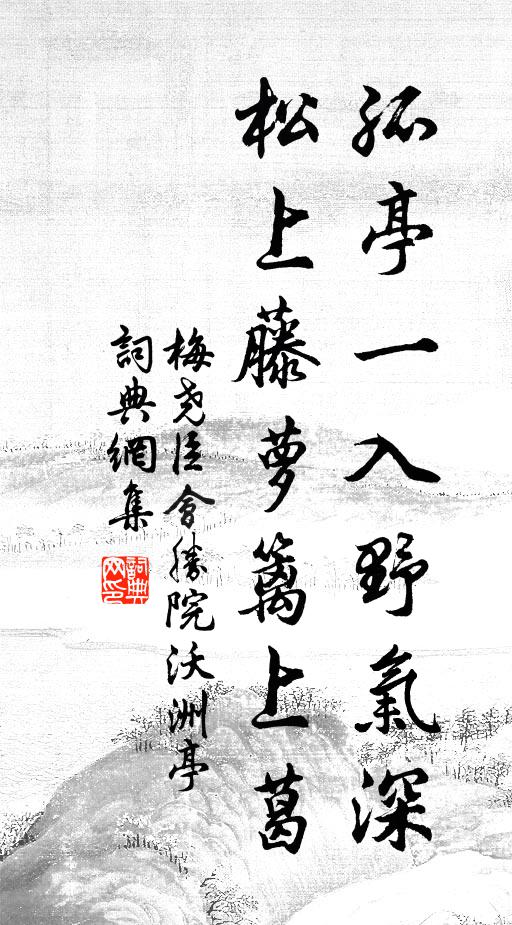 孤亭一入野氣深
松上藤夢籬上葛
梅堯臣會勝院沃洲亭
詞典網集
詞典網印